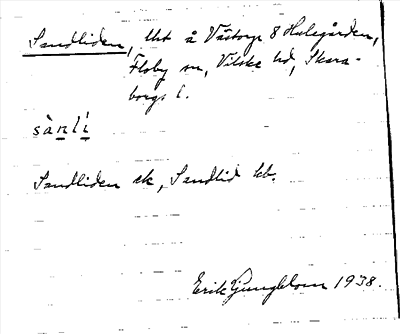 Sandliden, lht å Västorp 8 Holegården,
Floby sn, Vilske hd, Skara-
borgs l.
sànlì
Sandliden ek, Sandlid kb.
Erik Ljungblom 1938.